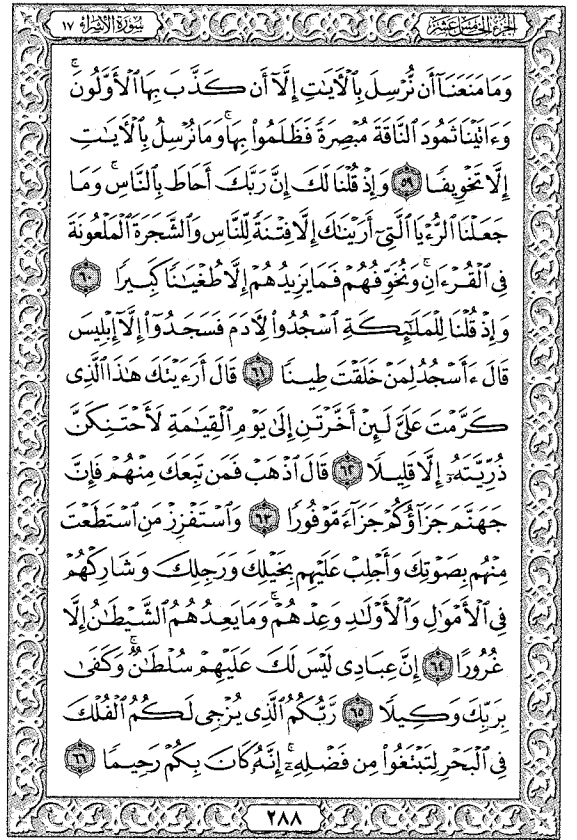 سُورَةُ الإِسْرَاءِ ١٧
الجُزْءُ الخَامِسَ عَشَرَ
وَمَا مَنَعَنَآ أَن نُّرْسِلَ بِٱلْأٓيَٰتِ إِلَّآ أَن كَذَّبَ بِهَا ٱلْأَوَّلُونَ ۚ
وَءَاتَيْنَا ثَمُودَ ٱلنَّاقَةَ مُبْصِرَةً فَظَلَمُوا۟ بِهَا ۚ وَمَا نُرْسِلُ بِٱلْأٓيَٰتِ
إِلَّا تَخْوِيفًا ٥٩ وَإِذْ قُلْنَا لَكَ إِنَّ رَبَّكَ أَحَاطَ بِٱلنَّاسِ ۚ وَمَا
جَعَلْنَا ٱلرُّءْيَا ٱلَّتِىٓ أَرَيْنَٰكَ إِلَّا فِتْنَةً لِّلنَّاسِ وَٱلشَّجَرَةَ ٱلْمَلْعُونَةَ
فِى ٱلْقُرْءَانِ ۚ وَنُخَوِّفُهُمْ فَمَا يَزِيدُهُمْ إِلَّا طُغْيَٰنًا كَبِيرًا ٦٠
وَإِذْ قُلْنَا لِلْمَلَٰٓئِكَةِ ٱسْجُدُوا۟ لِأٓدَمَ فَسَجَدُوٓا۟ إِلَّآ إِبْلِيسَ
قَالَ ءَأَسْجُدُ لِمَنْ خَلَقْتَ طِينًا ٦١ قَالَ أَرَءَيْتَكَ هَٰذَا ٱلَّذِى
كَرَّمْتَ عَلَىَّ لَئِنْ أَخَّرْتَنِ إِلَىٰ يَوْمِ ٱلْقِيَٰمَةِ لَأَحْتَنِكَنَّ
ذُرِّيَّتَهُۥٓ إِلَّا قَلِيلًا ٦٢ قَالَ ٱذْهَبْ فَمَن تَبِعَكَ مِنْهُمْ فَإِنَّ
جَهَنَّمَ جَزَآؤُكُمْ جَزَآءً مَّوْفُورًا ٦٣ وَٱسْتَفْزِزْ مَنِ ٱسْتَطَعْتَ
مِنْهُم بِصَوْتِكَ وَأَجْلِبْ عَلَيْهِم بِخَيْلِكَ وَرَجِلِكَ وَشَارِكْهُمْ
فِى ٱلْأَمْوَٰلِ وَٱلْأَوْلَٰدِ وَعِدْهُمْ ۚ وَمَا يَعِدُهُمُ ٱلشَّيْطَٰنُ إِلَّا
غُرُورًا ٦٤ إِنَّ عِبَادِى لَيْسَ لَكَ عَلَيْهِمْ سُلْطَٰنٌ ۚ وَكَفَىٰ
بِرَبِّكَ وَكِيلًا ٦٥ رَّبُّكُمُ ٱلَّذِى يُزْجِى لَكُمُ ٱلْفُلْكَ
فِى ٱلْبَحْرِ لِتَبْتَغُوا۟ مِن فَضْلِهِۦٓ ۚ إِنَّهُۥ كَانَ بِكُمْ رَحِيمًا ٦٦
٢٨٨